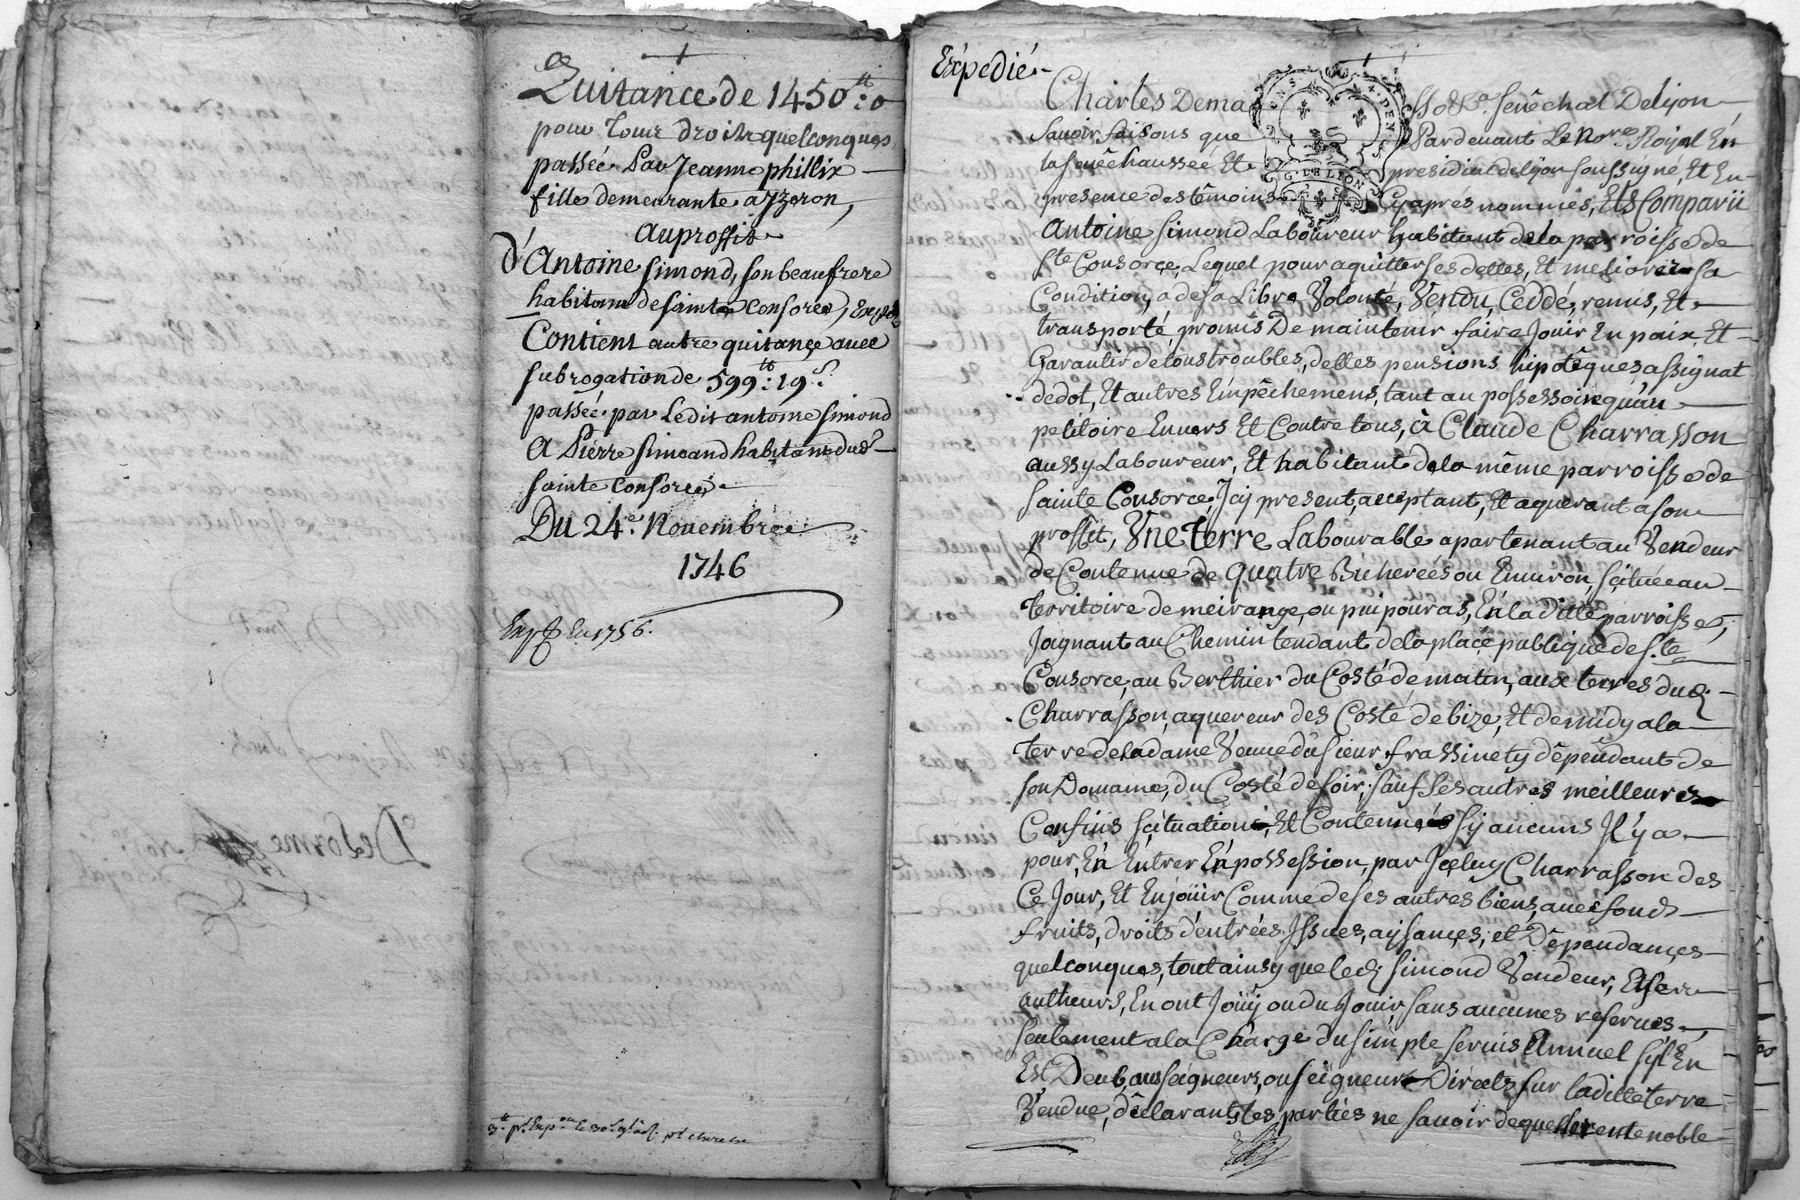 Quitance de 1450tt: 0
pour tour droits quelconques
passée Par Jeanne phillix
fille demeurante a Yzeron,
au proffit
d'Antoine simond, son beaufrere
habitant de sainte Consorce,
Contient autre quitance avec
subrogation de 599tt: 19s.
passée par Ledit antoine simond
A Pierre simoand habitant dud.
sainte Consorce
Du 24e. Novembre
1746
Exp. En 1756.
Delorme
Expedié
Charles Dema
sso&a. senêchal De lyon
savoir faisons que Pardevant Le Nore. Royal En
la senêchaussee Et presidial de lyon soussigné, Et En
G. DE LYON
presence des têmoins Cy apres nommés, Est Comparü
Antoine simond Laboureur habitant de la parroisse de
ste Consorce, Lequel pour aquitter ses dettes, Et meliorer sa
Condition, a de sa Libre Volonté, Vendu, Ceddé, remis, Et
transporté, promis De maintenir faire Jouir En paix, Et
Garantir de tous troubles, dettes pensions hipotêques assignat
de dot, Et autres Empêchemens, tant au possessoire qu'au
petitoire Envers Et Contre tous, à Claude Charrasson
aussy Laboureur, Et habitant de la même parroisse de
sainte Consorce, Jcy present, acceptant, Et aquerant a son
proffit, Vne terre Labourable apartenant au Vendeur
de Contenue de quatre Bicherées ou Environ, scituée au
territoire de meirange, ou pui pouras, En la ditte parroisse,
Joignant au Chemin tendant de la place publique de ste
Consorce, au Berthier du Costé de matin, aux terres dud.
Charrasson, aquereur des Costé de bize, Et de midy a la
terre de la dame Veuve du sieur frassinety dêpendant de
son Domaine, du Costé de soir, sauf ses autres meilleurs
Confins scituation, Et Contenue sy aucuns Jl y a
pour, En Entrer En possession, par Jceluy Charrasson des
Ce Jour, Et En joüir Comme de ses autres biens, avec fonds
fruits, droits d'entrées Jssues, aysances, et Dêpendances
quelconques, tout ainsy que led. simond Vendeur, Et ses
autheurs, En ont Joüy ou du Joüir, sans aucunes reserves,
seulement a la Charge du simple servis Annuel s'jl En
Est Deub aux seigneurs, ou seigneur Directs sur la ditte terre
Vendue, dêclarants les parties ne savoir de quelle rente noble